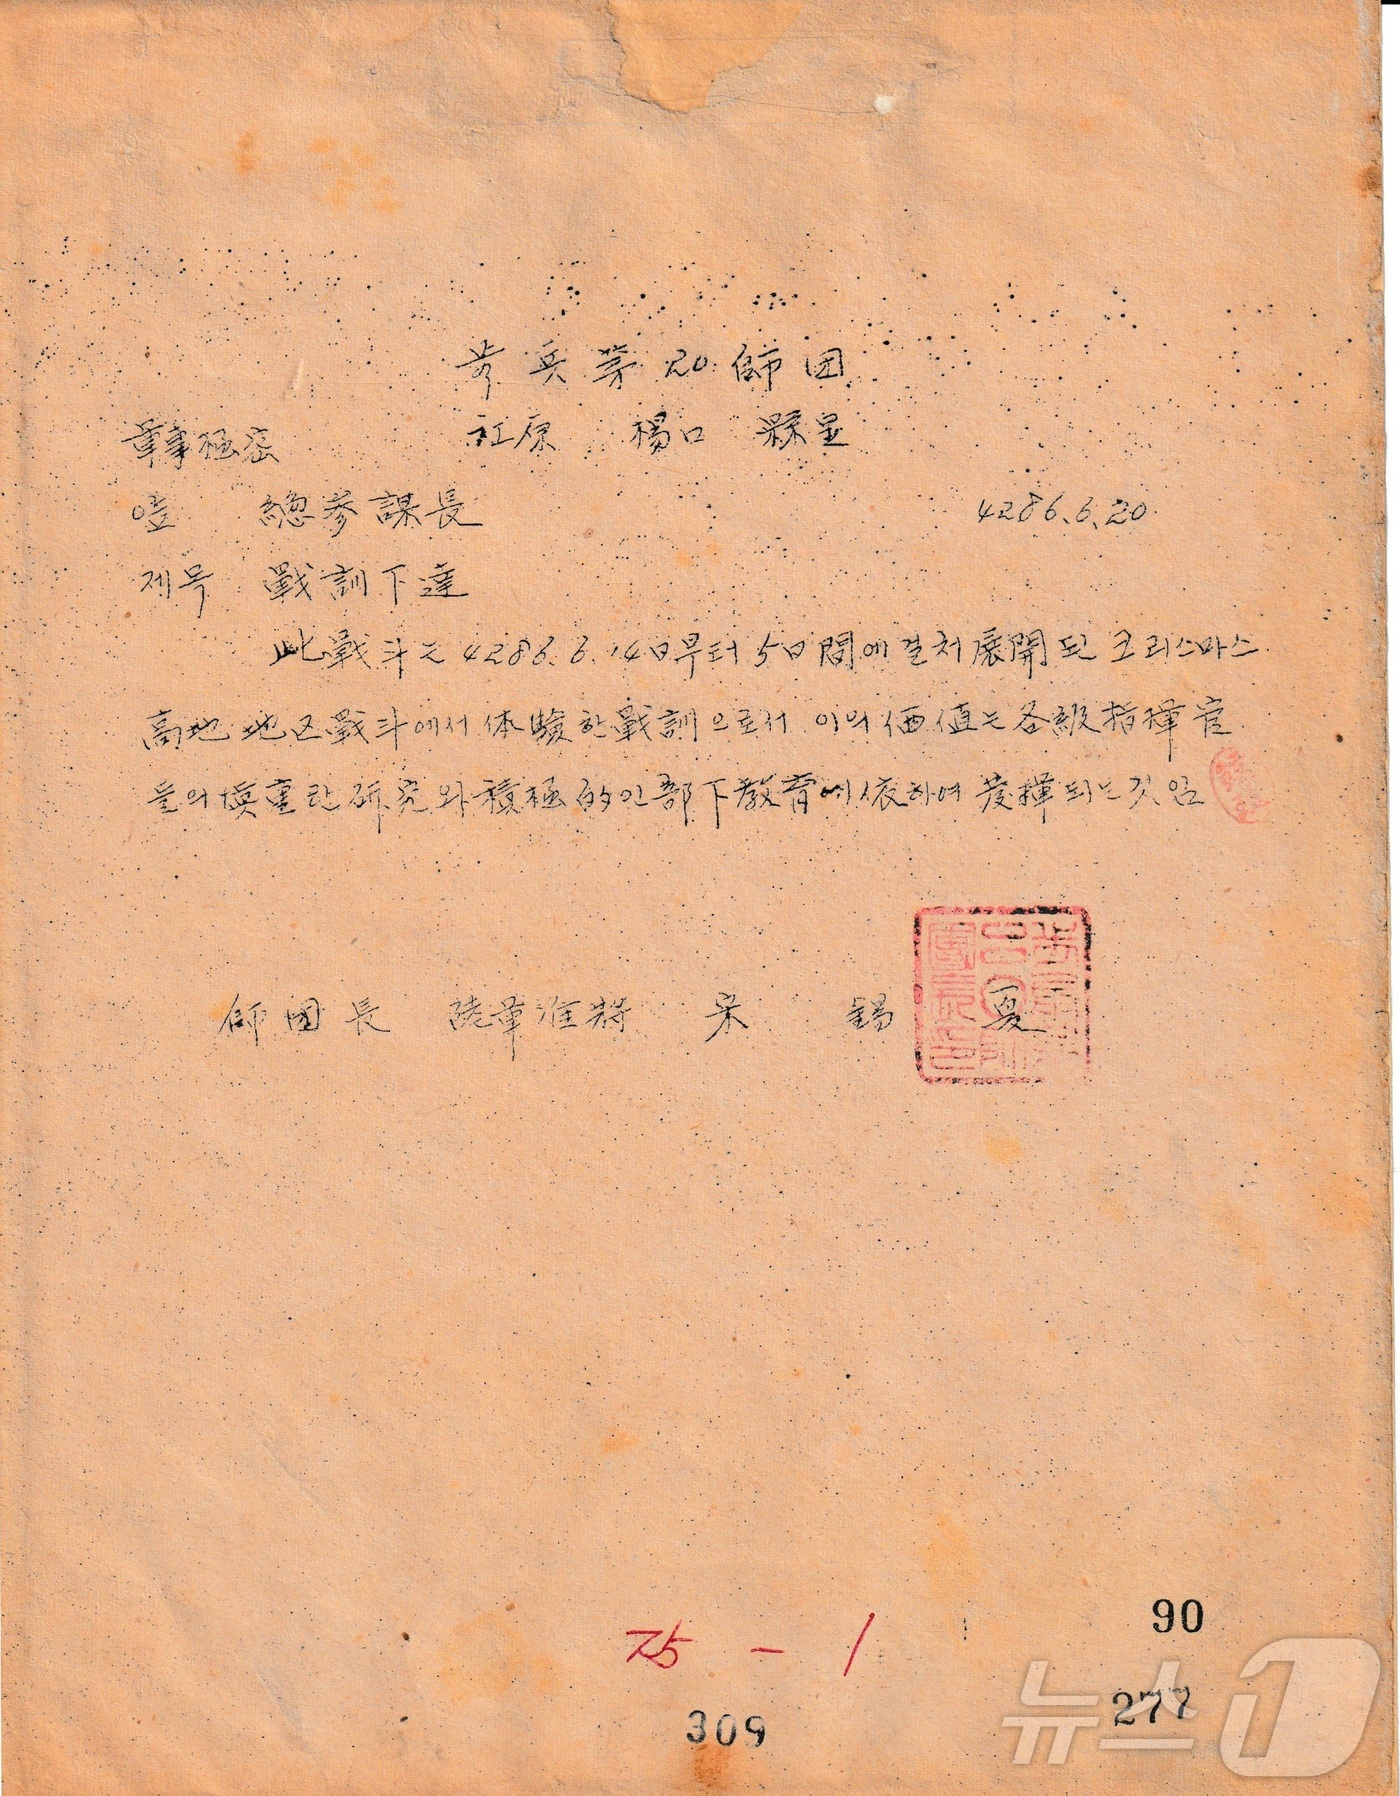 步兵第20師団
江原 楊口 縣里
軍事極密
總參謀長 4286.6.20
제목 戰訓下達
此戰斗는 4286.6.14日부터 5日間에걸처展開된 크리스마스
高地地区戰斗에서 体驗한戰訓으로서 이의価値는各級指揮官
들의慎重한硏究와積極的인部下敎育에依하여 發揮되는것임
師團長 陸軍准將 宋 錫 夏
75 - 1
90
277
309
뉴스1